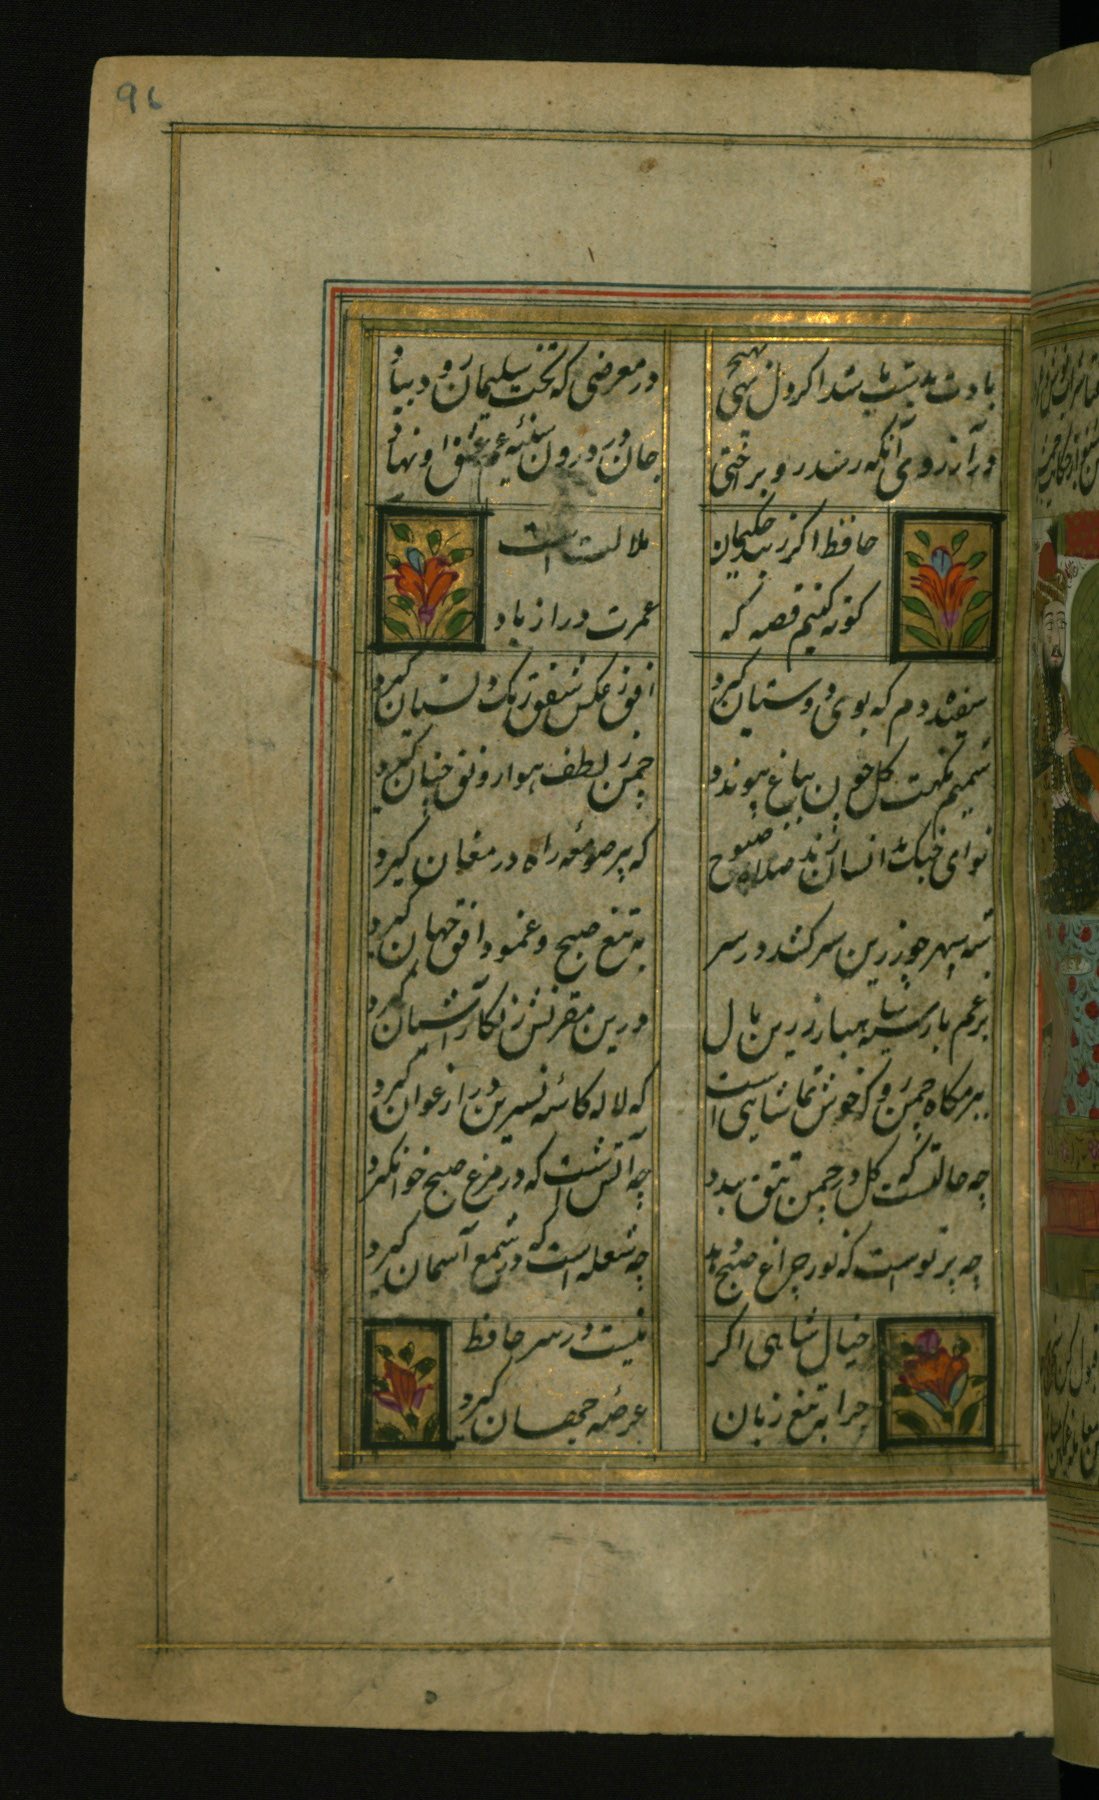 96
بادت بدست باشد اگر دل نهی بهیچ
در معرضی که تخت سلیمان رود بباد
در آرزوی آنکه رسد در و برختی
جان در درون سینه غم عشق او نهاد
حافظ اگر ز پند حکیمان
ملالت است
کوته کنیم قصه که
عمرت دراز باد
سفیده دم که بوی دوستان گیرد
افق ز عکس شفق رنک دلستان گیرد
شمیم نکهت گل چون بباغ پیوندد
چمن ز لطف هوا رونق جنان گیرد
نوای چنک انسان زند صلاه صبوح
که پیر صومعه راه در مغان گیرد
شه سپهر چو زرین سر کشد در سر
به تیغ صبح و عمود افق جهان گیرد
برغم بار سیه شاهباز زرین بال
درین مقرنس زنکار آشیان گیرد
ببزمکاه چمن رو که خوش تماشاییست
که لاله کاسه نسرین در ارغوان گیرد
چه حالتست که گل در چمن تتق بندد
چه آتش است که در مرغ صبح خوان گیرد
چه پرتو است که نور چراغ صبح دهد
چه شعله است که در شمع آسمان گیرد
خیال شاهی اگر
نیست در سر حافظ
چرا به تیغ زبان
عرصه جهان گیرد